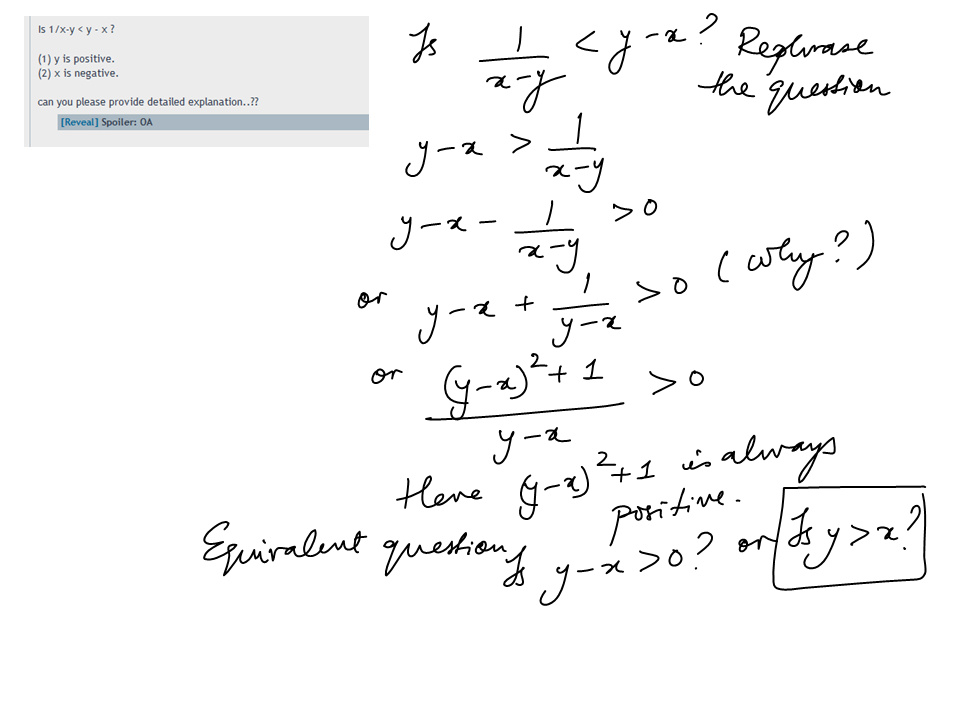 Is 1/x-y < y - x ?
(1) y is positive.
(2) x is negative.
can you please provide detailed explanation..??
[Reveal] Spoiler: OA
Is 1/(x-y) < y-x? Rephrase
the question
y-x > 1/(x-y)
y-x - 1/(x-y) >0
or y-x + 1/(y-x) >0 (why?)
or ((y-x)²+1)/(y-x) >0
Here (y-x)²+1 is always
positive.
Equivalent question Is y-x>0? or Is y>x?